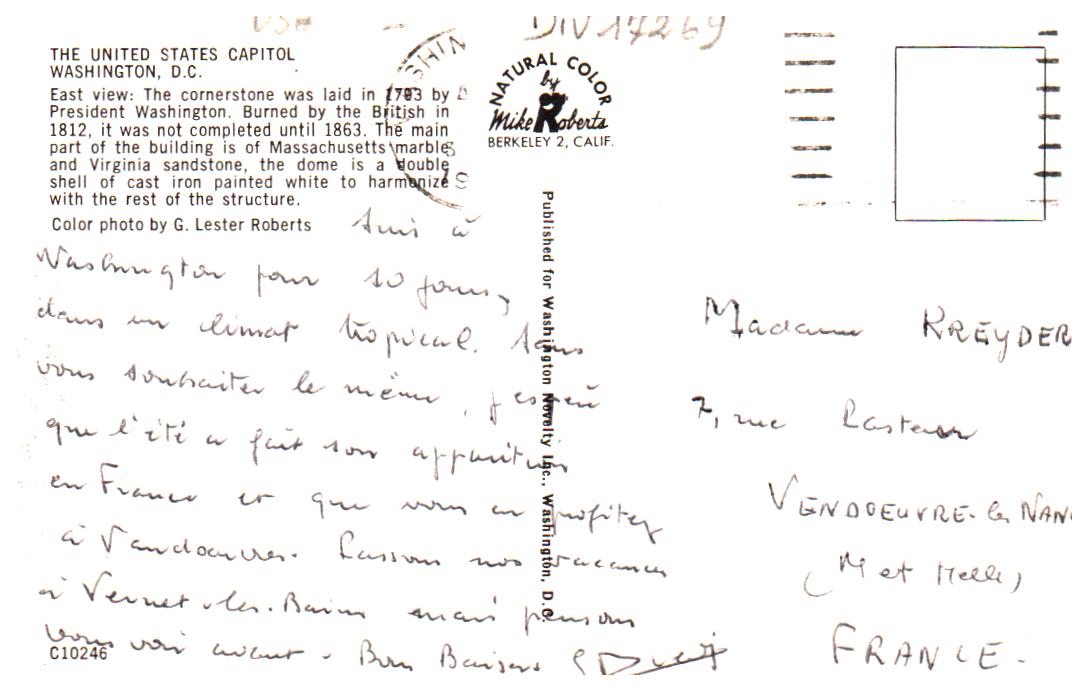 USA
DIV 17269
THE UNITED STATES CAPITOL
WASHINGTON, D.C.
East view: The cornerstone was laid in 1793 by
President Washington. Burned by the British in
1812, it was not completed until 1863. The main
part of the building is of Massachusetts marble
and Virginia sandstone, the dome is a double
shell of cast iron painted white to harmonize
with the rest of the structure.
Color photo by G. Lester Roberts
SHIN
NATURAL COLOR
by
Mike Roberts
BERKELEY 2, CALIF.
Published for Washington Novelty Inc., Washington, D.C.
Suis à
Washington pour 10 jours,
dans un climat tropical. Sans
vous souhaiter le même, j'espère
que l'été a fait son apparition
en France et que vous en profitez
à Vandoeuvre. Passons nos vacances
à Vernet-les-Bains mais pensons
vous voir avant. Bons Baisers
C10246
Madame KREYDER
7, rue Pasteur
VENDOEUVRE-les NANC
(M et Melle)
FRANCE.